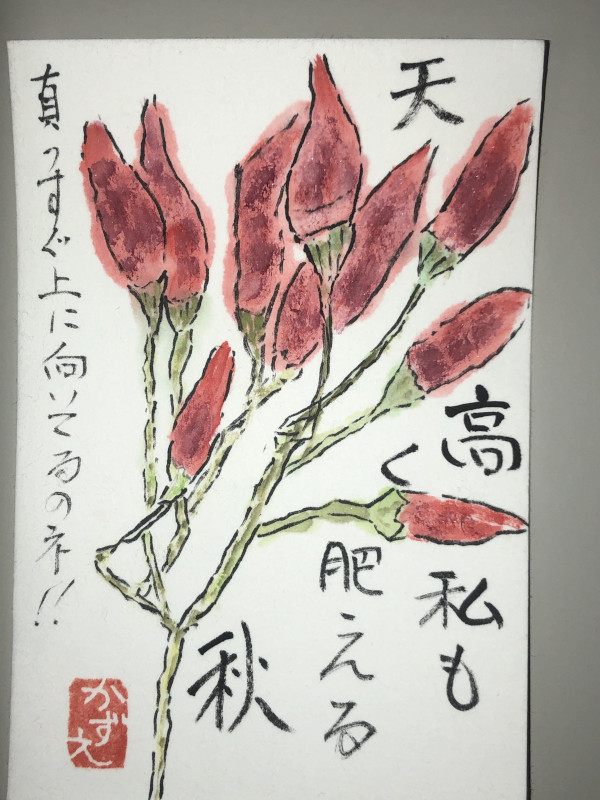 天
高く
私も
肥える
秋
真っすぐ上に向いてるのネ!!
かずえ